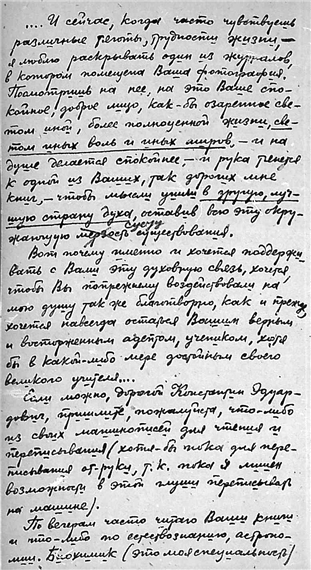 .... И сейчас, когда часто чувствуешь
различные тяготы, трудности жизни, —
я люблю раскрывать один из журналов,
в котором помещена Ваша фотография.
Посмотришь на нее, на это Ваше спо-
койное, доброе лицо, как-бы озаренное све-
том иной, более полноценной жизни, све-
том иных воль и иных миров, — и на
душе делается спокойнее, — и рука тянется
к одной из Ваших, так дорогих мне
книг, — чтобы мысли ушли в другую, луч-
шую страну духа, оставив всю эту окру-
жающую мерзость существования.
Вот почему именно и хочется поддержи-
вать с Вами эту духовную связь, хочется,
чтобы Вы попрежнему воздействовали на
мою душу так же благотворно, как и прежде,
хочется навсегда остаться Вашим верным
и восторженным адептом, учеником, хотя
бы в какой-либо мере достойным своего
великого учителя....
Если можно, дорогой Константин Эдуар-
дович, пришлите, пожалуйста, что-либо
из своих машинописей для чтения и
переписывания (хотя-бы пока для пере-
писывания от-руки, т. к. пока я лишен
возможности в этой глуши переписывать
на машине).
По вечерам часто читаю Ваши книги
и что-либо по естествознанию, астроно-
мии. Биохимик (это моя специальность)